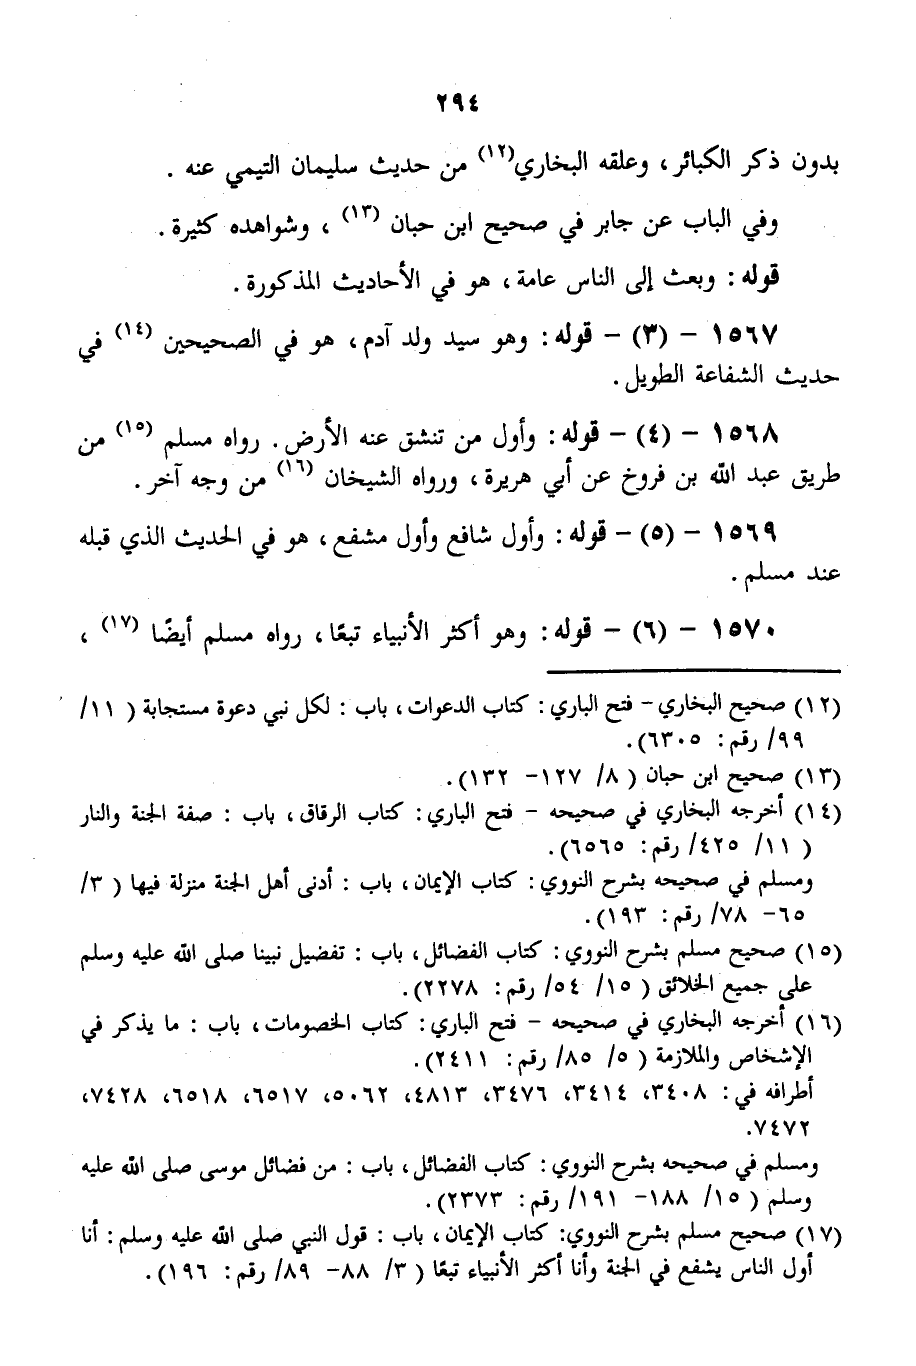 ٢٩٤
بدون ذكر الكبائر ، وعلقه البخاري(١٢) من حديث سليمان التيمي عنه .
وفي الباب عن جابر في صحيح ابن حبان (١٣) ، وشواهده كثيرة .
قوله : وبعث إلى الناس عامة ، هو في الأحاديث المذكورة .
١٥٦٧ – (٣) – قوله : وهو سيد ولد آدم ، هو في الصحيحين (١٤) في
حديث الشفاعة الطويل .
١٥٦٨ – (٤) – قوله : وأول من تنشق عنه الأرض . رواه مسلم (١٥) من
طريق عبد الله بن فروخ عن أبي هريرة ، ورواه الشيخان (١٦) من وجه آخر .
١٥٦٩ – (٥) – قوله : وأول شافع وأول مشفع ، هو في الحديث الذي قبله
عند مسلم .
١٥٧٠ – (٦) – قوله : وهو أكثر الأنبياء تبعًا ، رواه مسلم أيضًا (١٧) ،
(١٢) صحيح البخاري – فتح الباري : كتاب الدعوات ، باب : لكل نبي دعوة مستجابة ( ١١/
٩٩/ رقم : ٦٣٠٥).
(١٣) صحيح ابن حبان ( ٨/ ١٢٧– ١٣٢).
(١٤) أخرجه البخاري في صحيحه – فتح الباري : كتاب الرقاق ، باب : صفة الجنة والنار
( ١١/ ٤٢٥/ رقم : ٦٥٦٥).
ومسلم في صحيحه بشرح النووي : كتاب الإيمان ، باب : أدنى أهل الجنة منزلة فيها ( ٣/
٦٥– ٧٨/ رقم : ١٩٣).
(١٥) صحيح مسلم بشرح النووي : كتاب الفضائل ، باب : تفضيل نبينا صلى الله عليه وسلم
على جميع الخلائق ( ١٥/ ٥٤/ رقم : ٢٢٧٨).
(١٦) أخرجه البخاري في صحيحه – فتح الباري : كتاب الخصومات ، باب : ما يذكر في
الإشخاص والملازمة ( ٥/ ٨٥/ رقم : ٢٤١١).
أطرافه في : ٣٤٠٨، ٣٤١٤، ٣٤٧٦، ٤٨١٣، ٥٠٦٢، ٦٥١٧، ٦٥١٨، ٧٤٢٨،
٧٤٧٢.
ومسلم في صحيحه بشرح النووي : كتاب الفضائل ، باب : من فضائل موسى صلى الله عليه
وسلم ( ١٥/ ١٨٨– ١٩١/ رقم : ٢٣٧٣).
(١٧) صحيح مسلم بشرح النووي: كتاب الإيمان ، باب : قول النبي صلى الله عليه وسلم : أنا
أول الناس يشفع في الجنة وأنا أكثر الأنبياء تبعًا ( ٣/ ٨٨– ٨٩/ رقم : ١٩٦).